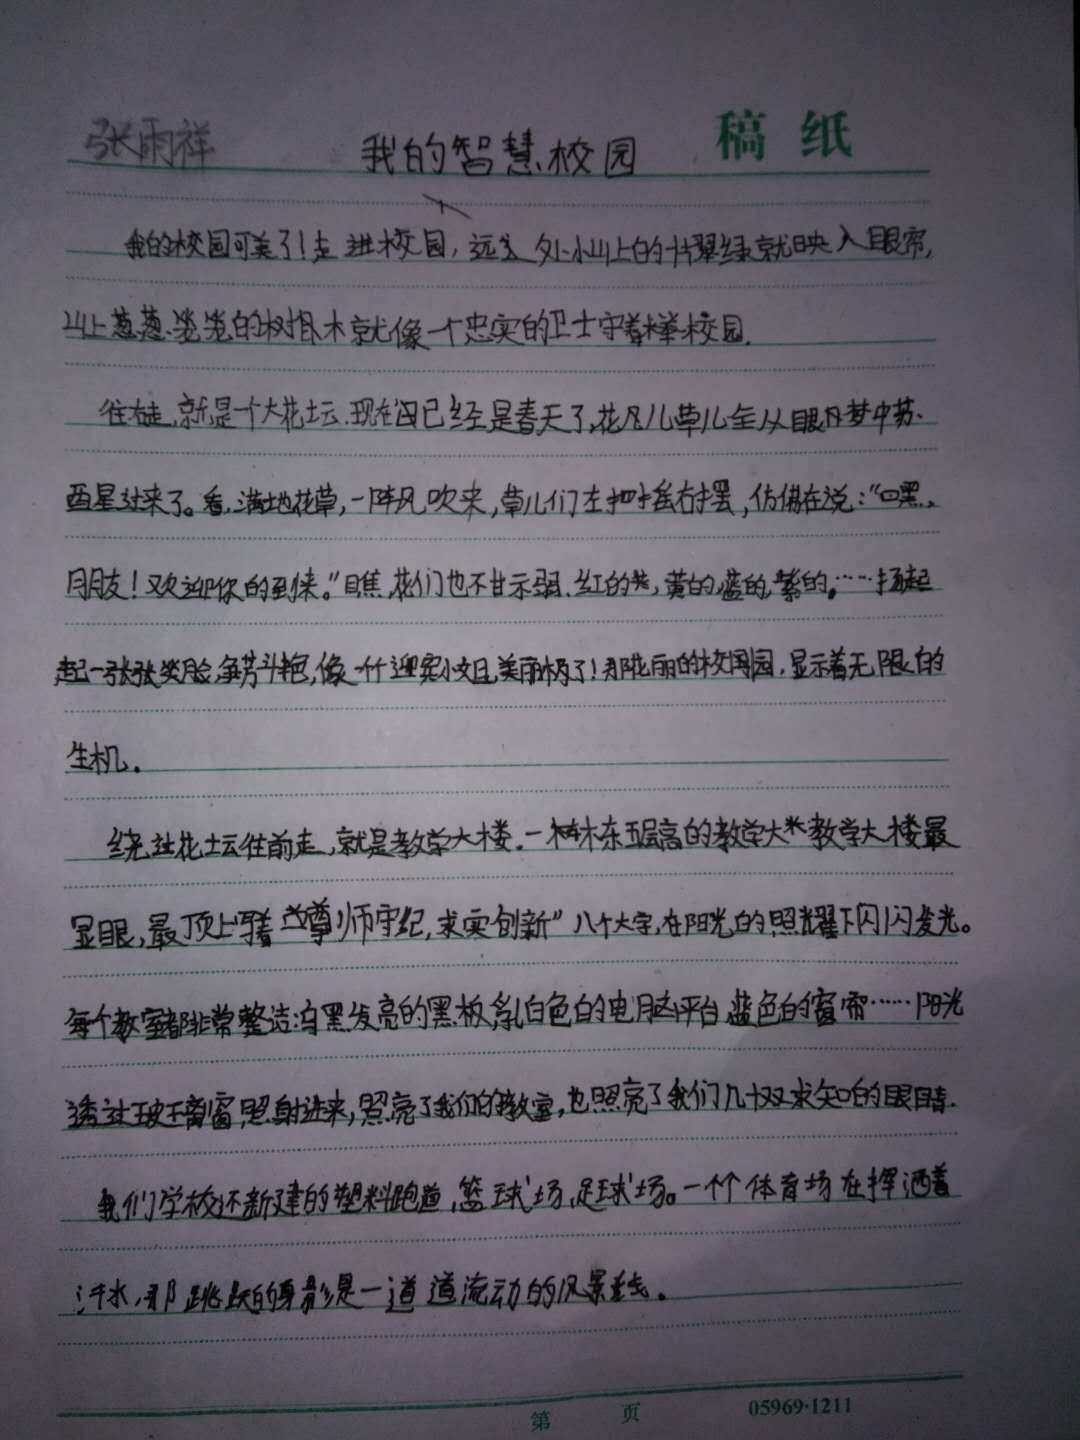 张雨祥 我的智慧校园 稿纸
我的校园可美了！走进校园，远处小山上的一片翠绿就映入眼帘，
山上葱葱笼笼的树木就像一个忠实的卫士守着校园.
往右走,就是一个大花坛.现在已经是春天了,花儿草儿全从梦中苏
醒过来了。看,满地花草,一阵风吹来,草儿们左摇右摆,仿佛在说："嘿,
朋友！欢迎你的到来。"瞧,花们也不甘示弱.红的,黄的,蓝的,紫的……扬起
起一张张笑脸,争芳斗艳,像一个迎宾小姐,美丽极了！那美丽的校园,显示着无限的
生机.
绕过花坛往前走,就是教学大楼.一栋五层高的教学大楼最
显眼,最顶上写着"尊师守纪,求实创新"八个大字,在阳光的照耀下闪闪发光。
每个教室都非常整洁:乌黑发亮的黑板,乳白色的电脑平台,蓝色的窗帘……阳光
透过玻璃窗,照射进来,照亮了我们的教室,也照亮了我们几十双求知的眼睛.
我们学校还新建的塑料跑道,篮球场,足球场。一个个体育场在挥洒着
汗水,那跳跃的身影是一道道流动的风景线。
第 页 05969·1211